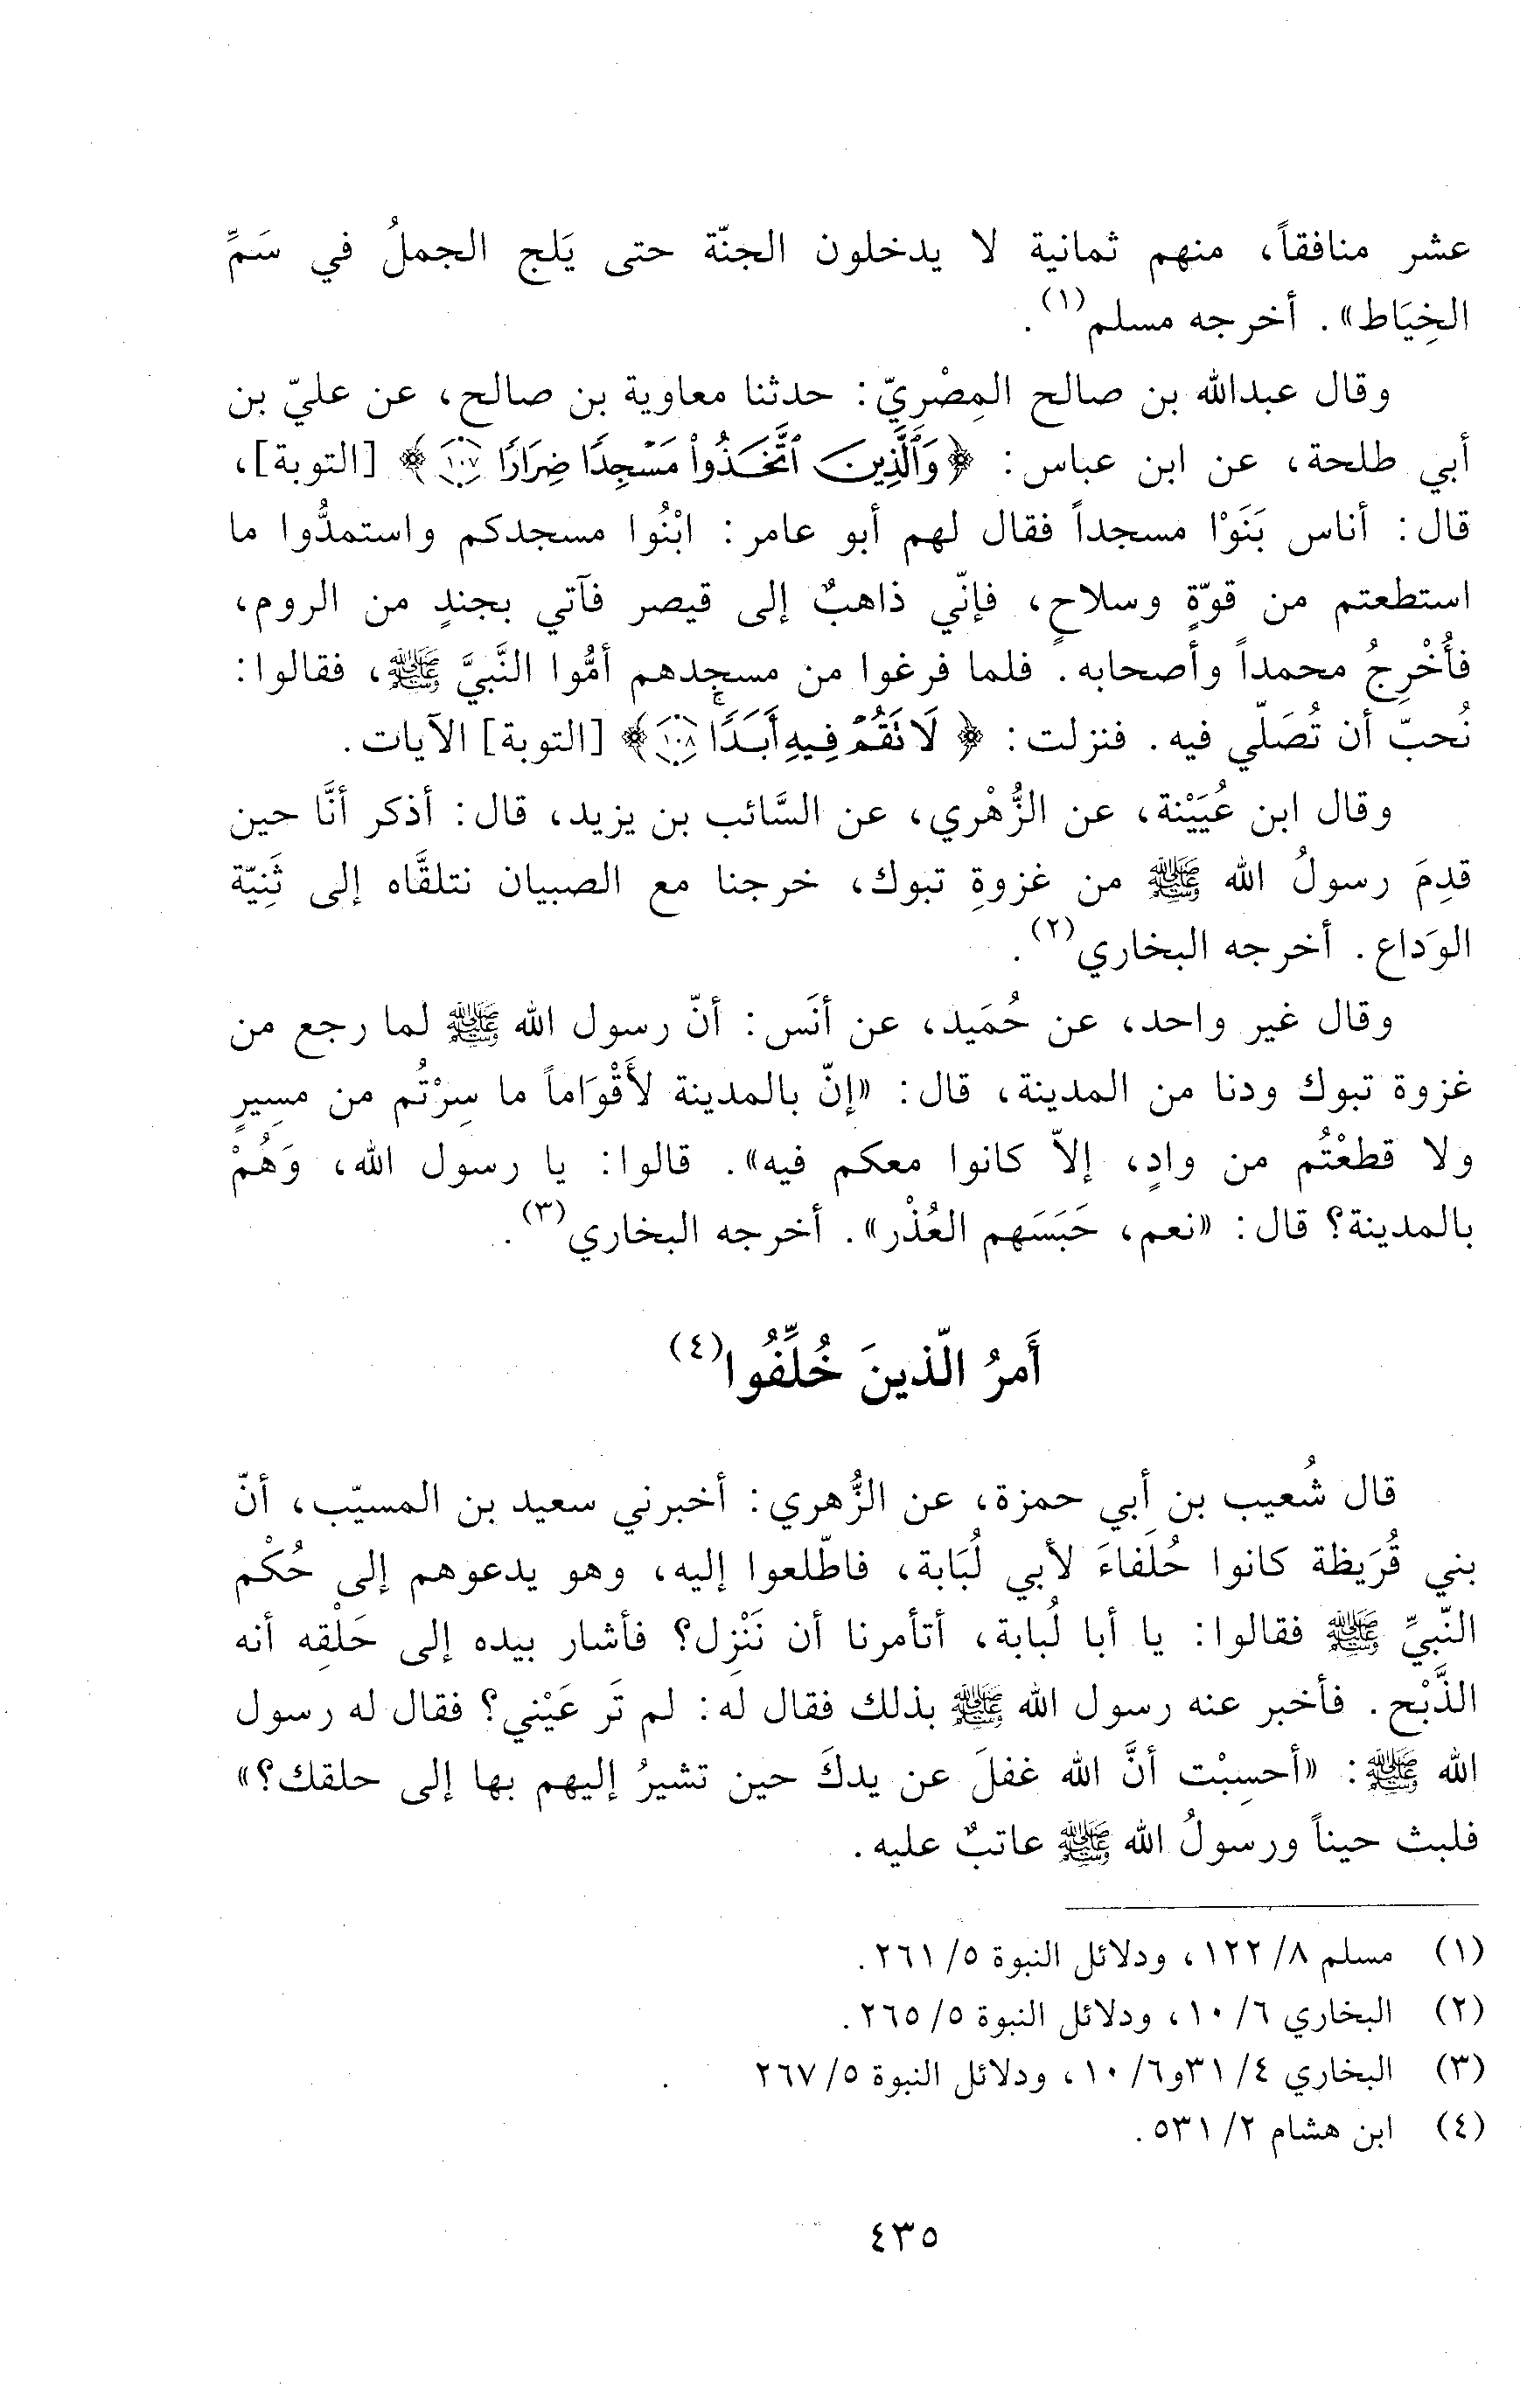 عشر منافقاً، منهم ثمانية لا يدخلون الجنّة حتى يَلج الجملُ في سَمِّ
الخِيَاط». أخرجه مسلم(١).
وقال عبدالله بن صالح المِصْرِيّ: حدثنا معاوية بن صالح، عن عليّ بن
أبي طلحة، عن ابن عباس: ﴿وَٱلَّذِينَ ٱتَّخَذُوا۟ مَسْجِدًا ضِرَارًا ١٠٧﴾ [التوبة]،
قال: أناس بَنَوْا مسجداً فقال لهم أبو عامر: ابْنُوا مسجدكم واستمدُّوا ما
استطعتم من قوّةٍ وسلاحٍ، فإنّي ذاهبٌ إلى قيصر فآتي بجندٍ من الروم،
فأُخْرِجُ محمداً وأصحابه. فلما فرغوا من مسجدهم أمُّوا النَّبيَّ ﷺ، فقالوا:
نُحبّ أن تُصَلّي فيه. فنزلت: ﴿لَا تَقُمْ فِيهِ أَبَدًاۚ ١٠٨﴾ [التوبة] الآيات.
وقال ابن عُيَيْنة، عن الزُّهْري، عن السَّائب بن يزيد، قال: أذكر أنَّا حين
قدِمَ رسولُ الله ﷺ من غزوةِ تبوك، خرجنا مع الصبيان نتلقَّاه إلى ثَنِيّة
الوَداع. أخرجه البخاري(٢).
وقال غير واحد، عن حُمَيد، عن أنَس: أنّ رسول الله ﷺ لما رجع من
غزوة تبوك ودنا من المدينة، قال: «إنّ بالمدينة لأَقْوَاماً ما سِرْتُم من مسِيرٍ
ولا قطعْتُم من وادٍ، إلاّ كانوا معكم فيه». قالوا: يا رسول الله، وَهُمْ
بالمدينة؟ قال: «نعم، حَبَسَهم العُذْر». أخرجه البخاري(٣).
أَمرُ الّذينَ خُلِّفُوا(٤)
قال شُعيب بن أبي حمزة، عن الزُّهري: أخبرني سعيد بن المسيّب، أنّ
بني قُرَيظة كانوا حُلَفاءَ لأبي لُبَابة، فاطّلعوا إليه، وهو يدعوهم إلى حُكْم
النّبيِّ ﷺ فقالوا: يا أبا لُبابة، أتأمرنا أن نَنْزِل؟ فأشار بيده إلى حَلْقِه أنه
الذَّبْح. فأخبر عنه رسول الله ﷺ بذلك فقال له: لم تَر عَيْني؟ فقال له رسول
الله ﷺ: «أحسِبْت أنَّ الله غفلَ عن يدكَ حين تشيرُ إليهم بها إلى حلقك؟»
فلبث حيناً ورسولُ الله ﷺ عاتبٌ عليه.
(١) مسلم ٨/ ١٢٢، ودلائل النبوة ٥/ ٢٦١.
(٢) البخاري ٦/ ١٠، ودلائل النبوة ٥/ ٢٦٥.
(٣) البخاري ٤/ ٣١ و٦/ ١٠، ودلائل النبوة ٥/ ٢٦٧
(٤) ابن هشام ٢/ ٥٣١.
٤٣٥